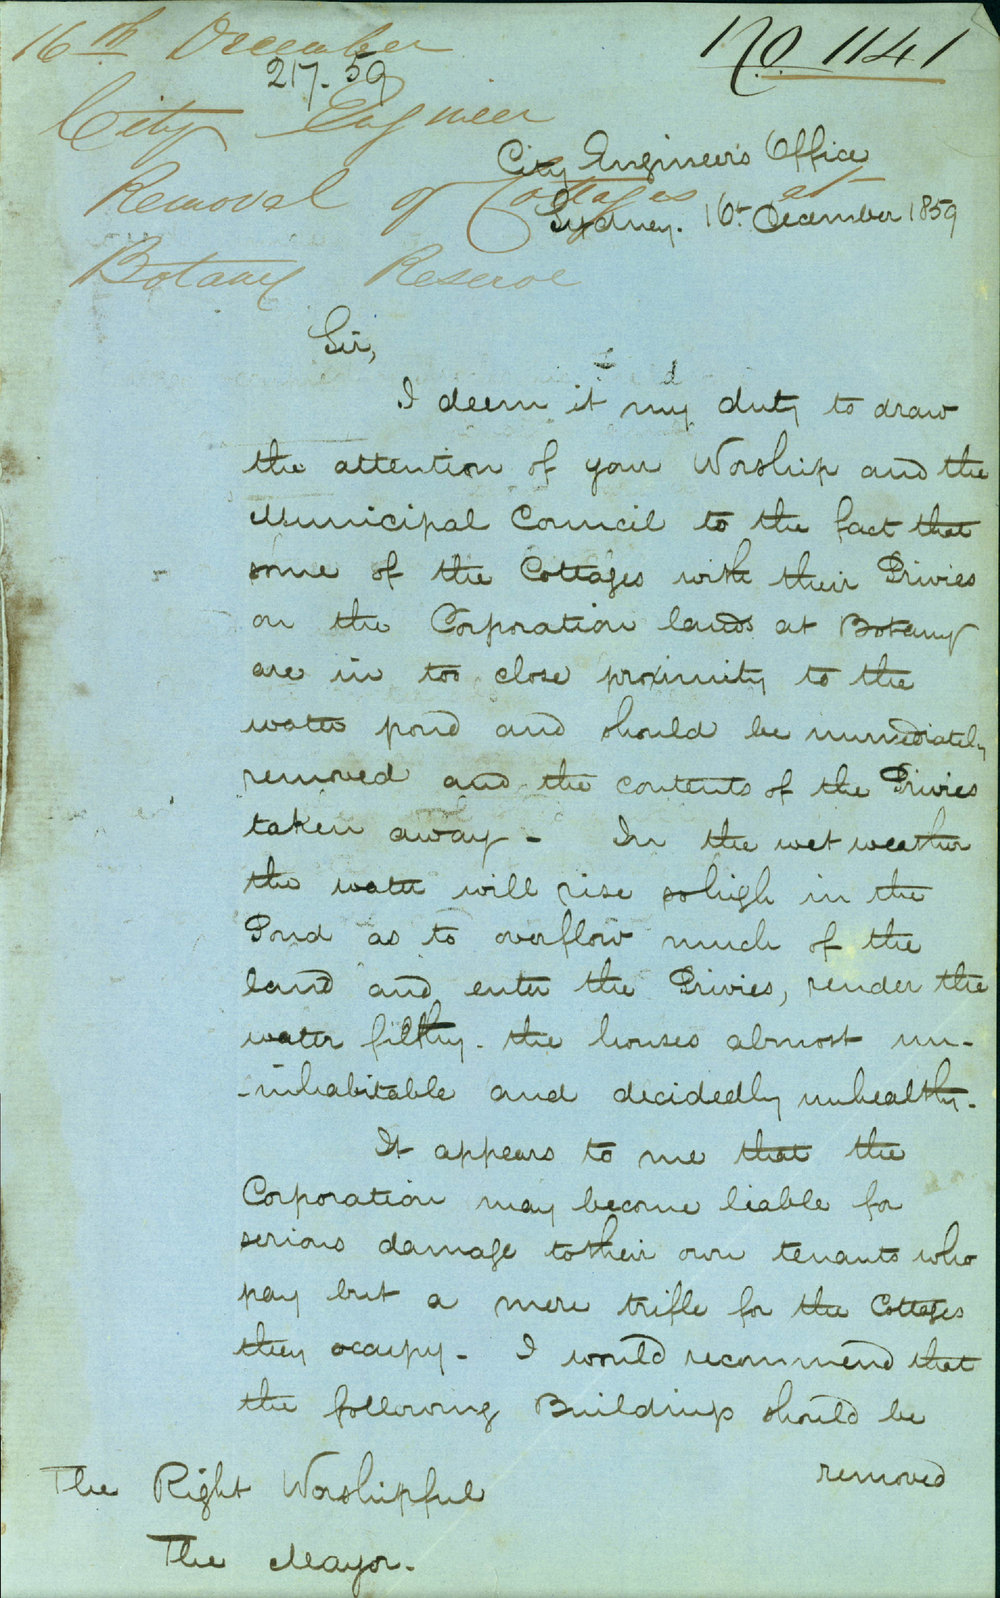 16th December
No 1141
217. 59
City Engineer
Removal of Cottages at
Botany Reserve
City Engineer's Office
Sydney. 16th December 1859
Sir,
I deem it my duty to draw
the attention of your Worship and the
Municipal Council to the fact that
some of the Cottages with their Privies
on the Corporation lands at Botany
are in too close proximity to the
water pond and should be immediately
removed and the contents of the Privies
taken away - In the wet weather
the water will rise so high in the
Pond as to overflow much of the
land and enter the Privies, render the
water filthy - the houses almost un-
-inhabitable and decidedly unhealthy.
It appears to me that the
Corporation may become liable for
serious damage to their own tenants who
pay but a mere trifle for the Cottages
they occupy - I would recommend that
the following Buildings should be
removed
The Right Worshipful
The Mayor.